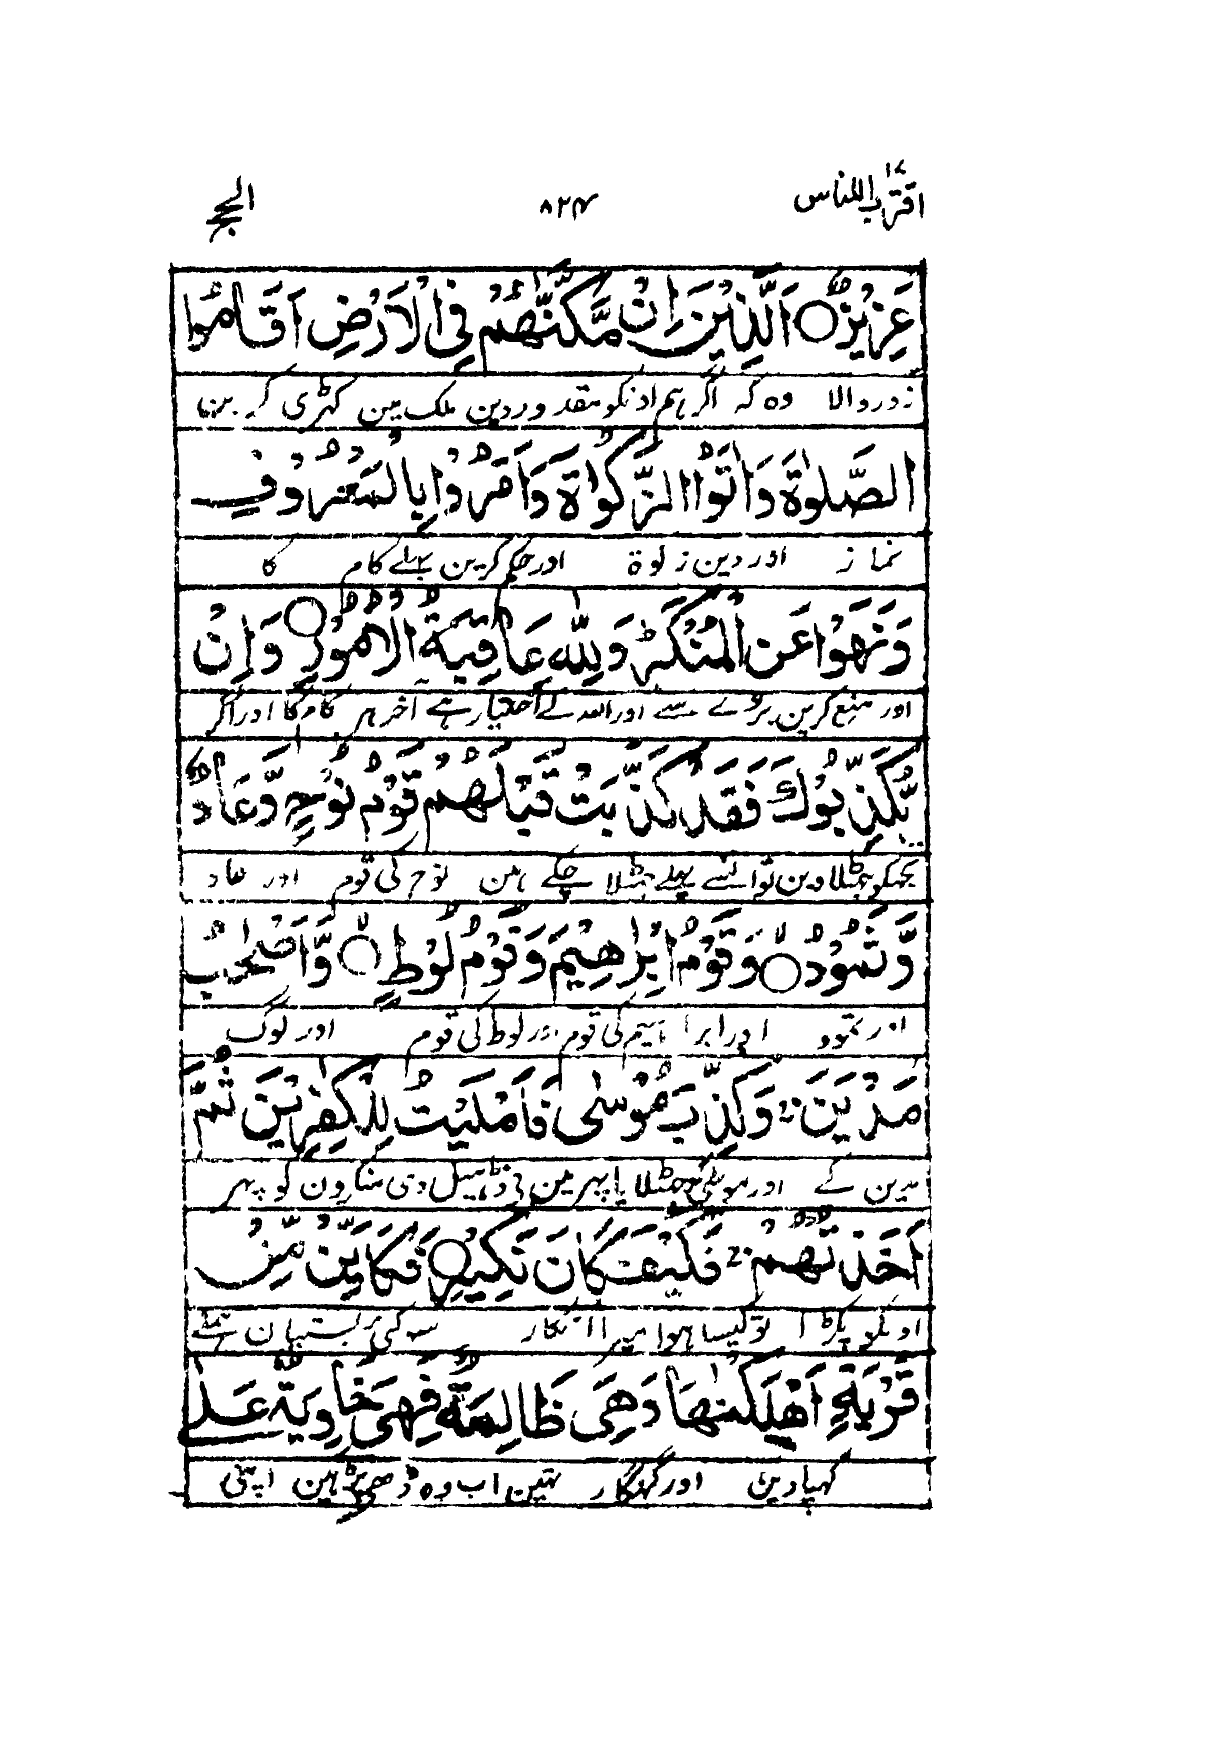 اقترب للناس ۱۷ ۸۲۴ الحج
عَزِيْزٌ ○ اَلَّذِيْنَ اِنْ مَّكَّنّٰهُمْ فِى الْاَرْضِ اَقَامُوا
زوروالا وہ کہ اگر ہم اونکو مقدور دین ملک مین کھڑی کرین
الصَّلٰوةَ وَاٰتَوُا الزَّكٰوةَ وَاَمَرُوْا بِالْمَعْرُوْفِ
نماز اور دین زکوة اور حکم کرین بھلے کام کا
وَنَهَوْا عَنِ الْمُنْكَرِ ؕ وَلِلّٰهِ عَاقِبَةُ الْاُمُوْرِ ○ وَاِنْ
اور منع کرین برے سے اور اللہ کے اختیار ہے آخر ہر کام کا اور اگر
يُّكَذِّبُوْكَ فَقَدْ كَذَّبَتْ قَبْلَهُمْ قَوْمُ نُوْحٍ وَّعَادٌ
تجھکو جھٹلاوین تو انسے پہلے جھٹلا چکے ہین نوح کی قوم اور عاد
وَّثَمُوْدُ ○ وَقَوْمُ اِبْرٰهِيْمَ وَقَوْمُ لُوْطٍ ○ وَّاَصْحٰبُ
اور ثمود اور ابراہیم کی قوم اور لوط کی قوم اور لوگ
مَدْيَنَ ۚ وَكُذِّبَ مُوْسٰى فَاَمْلَيْتُ لِلْكٰفِرِيْنَ ثُمَّ
مدین کے اور موسٰی کو جھٹلایا پھر مین نی ڈھیل دی منکرون کو پھر
اَخَذْتُهُمْ ۚ فَكَيْفَ كَانَ نَكِيْرِ ○ فَكَاَيِّنْ مِّنْ
اونکو پکڑا تو کیسا ہوا میرا انکار سو کئی بستیان ہمنے
قَرْيَةٍ اَهْلَكْنٰهَا وَهِىَ ظَالِمَةٌ فَهِىَ خَاوِيَةٌ عَلٰى
کھپا دین اور گنہگار تھین اب وہ ڈھی پڑی ہین اپنی